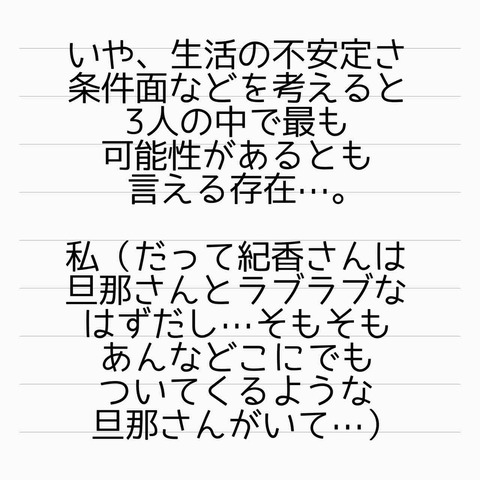 いや、生活の不安定さ
条件面などを考えると
3人の中で最も
可能性があるとも
言える存在…。
私（だって紀香さんは
旦那さんとラブラブな
はずだし…そもそも
あんなどこにでも
ついてくるような
旦那さんがいて…）